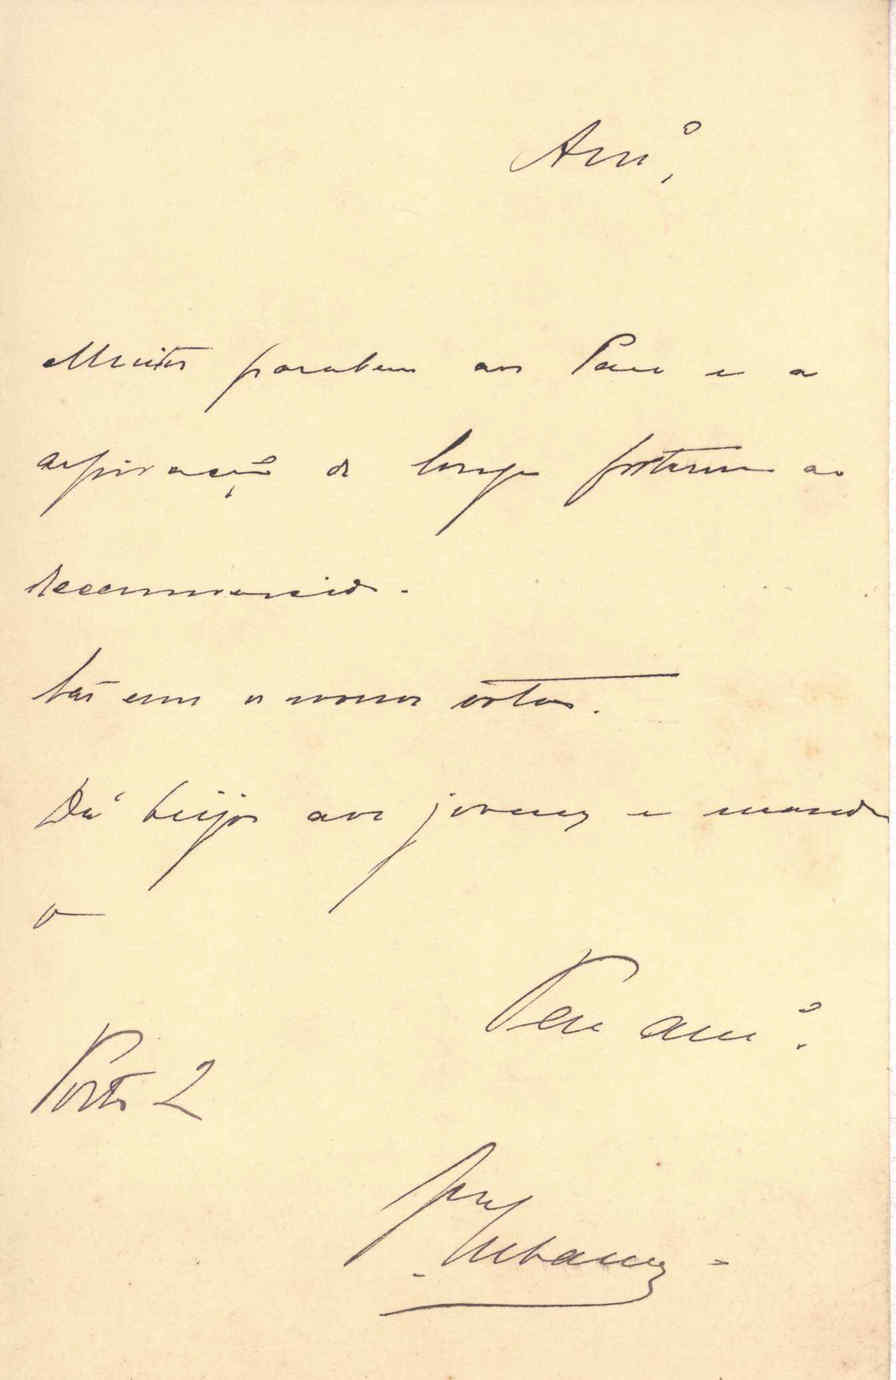 Amº,
Muitos parabens aos Paes e a
aspiração de longo futuro ao
recemnascido.
são os nossos votos.
Dá beijos aos jovens e manda
o
Teu amº.
Porto 2
José